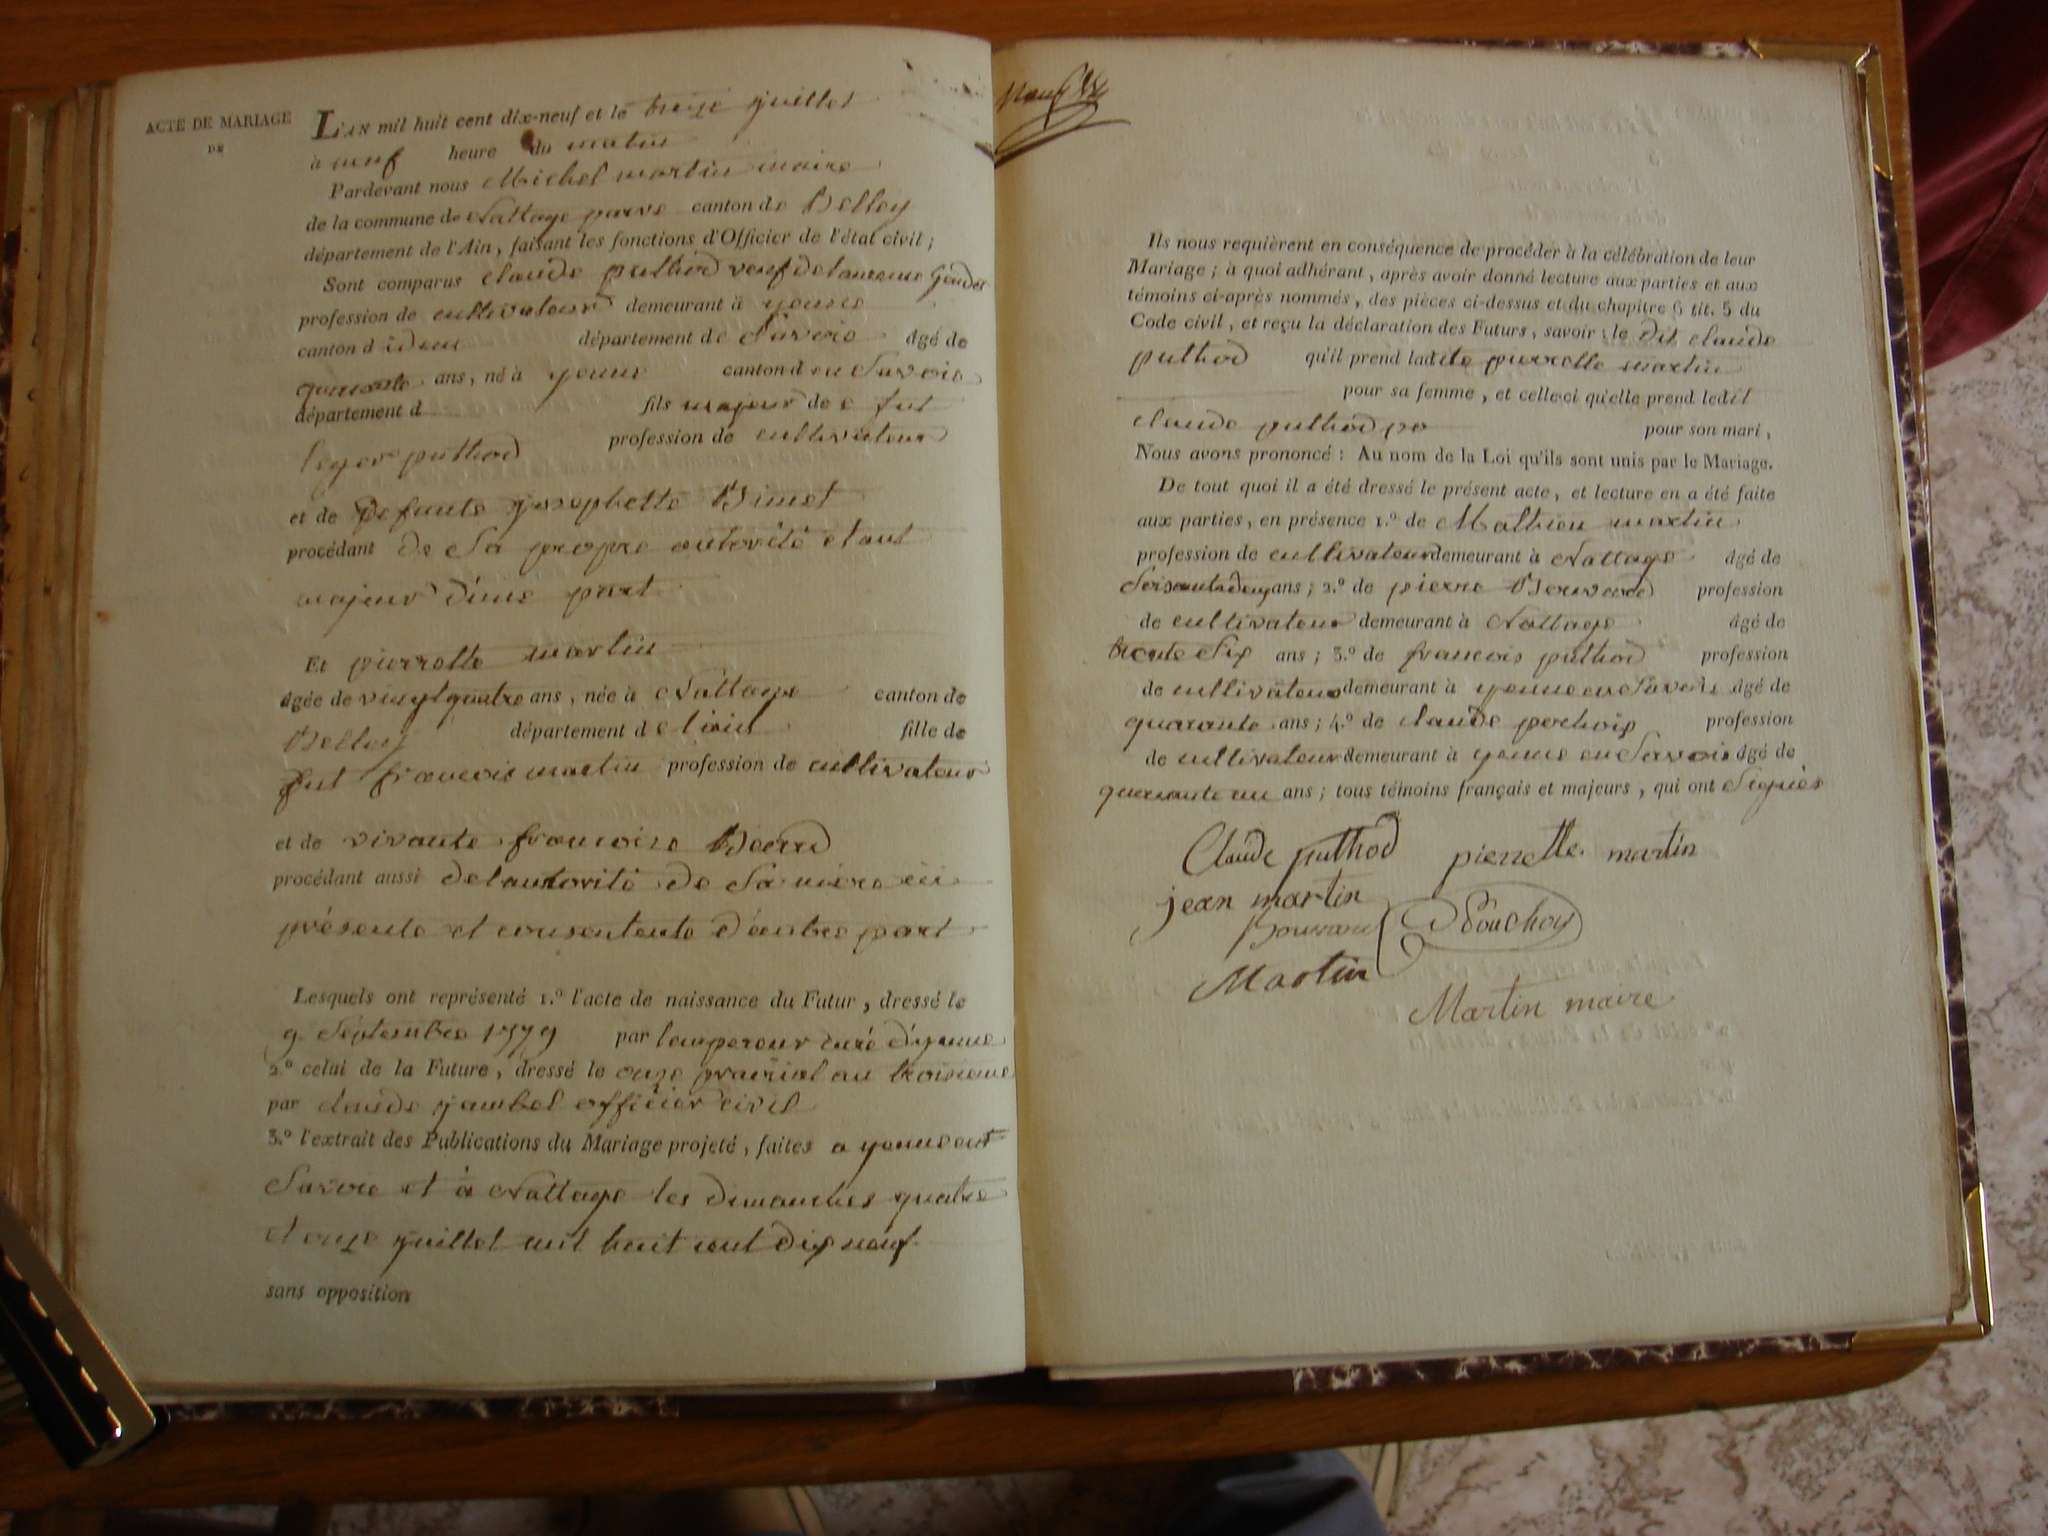 ACTE DE MARIAGE
DE
L'AN mil huit cent dix-neuf et le treize juillet
à neuf heure du matin
Pardevant nous Michel martin maire
de la commune de Nattage parve canton de Belley
département de l'Ain, faisant les fonctions d'Officier de l'état civil ;
Sont comparus claude puthod veuf de
profession de cultivateur demeurant à yenne
canton d idem département de Savoie âgé de
quarante ans, né à yenne canton d en Savoie
département d fils majeur de fut
leger puthod profession de cultivateur
et de defunte josephette Bimet
procédant de Sa propre autorité etant
majeur d'une part
Et pierrette martin
âgée de vingt quatre ans, née à Nattage canton de
Belley département de l'ain fille de
fut francois martin profession de cultivateur
et de vivante francoise
procédant aussi de lautorité de Sa mere ici
présente et consentente d'autre part
Lesquels ont représenté 1.º l'acte de naissance du Futur, dressé le
9 Septembre 1779 par lempereur curé d'yenne
2.º celui de la Future, dressé le onze prairial an troisieme
par claude jambel officier civil
3.º l'extrait des Publications du Mariage projeté, faites a yenne en
Savoie et à Nattage les dimanches quatre
et onze juillet mil huit cent dix neuf
sans opposition
Ils nous requièrent en conséquence de procéder à la célébration de leur
Mariage ; à quoi adhérant, après avoir donné lecture aux parties et aux
témoins ci-après nommés, des pièces ci-dessus et du chapitre 6 tit. 5 du
Code civil, et reçu la déclaration des Futurs, savoir : le dit claude
puthod qu'il prend ladite pierrette martin
pour sa femme, et celle-ci qu'elle prend ledit
claude puthod po pour son mari,
Nous avons prononcé : Au nom de la Loi qu'ils sont unis par le Mariage.
De tout quoi il a été dressé le présent acte, et lecture en a été faite
aux parties, en présence 1.º de Mathieu martin
profession de cultivateur demeurant à Nattage âgé de
Soisante deux ans ; 2.º de pierre profession
de cultivateur demeurant à Nattage âgé de
trente Six ans ; 3.º de francois puthod profession
de cultivateur demeurant à yenne en Savoie âgé de
quarante ans ; 4.º de claude profession
de cultivateur demeurant à yenne en Savoie âgé de
quarante un ans ; tous témoins français et majeurs, qui ont Signés
Claude puthod pierrette martin
jean martin
Martin
Martin maire